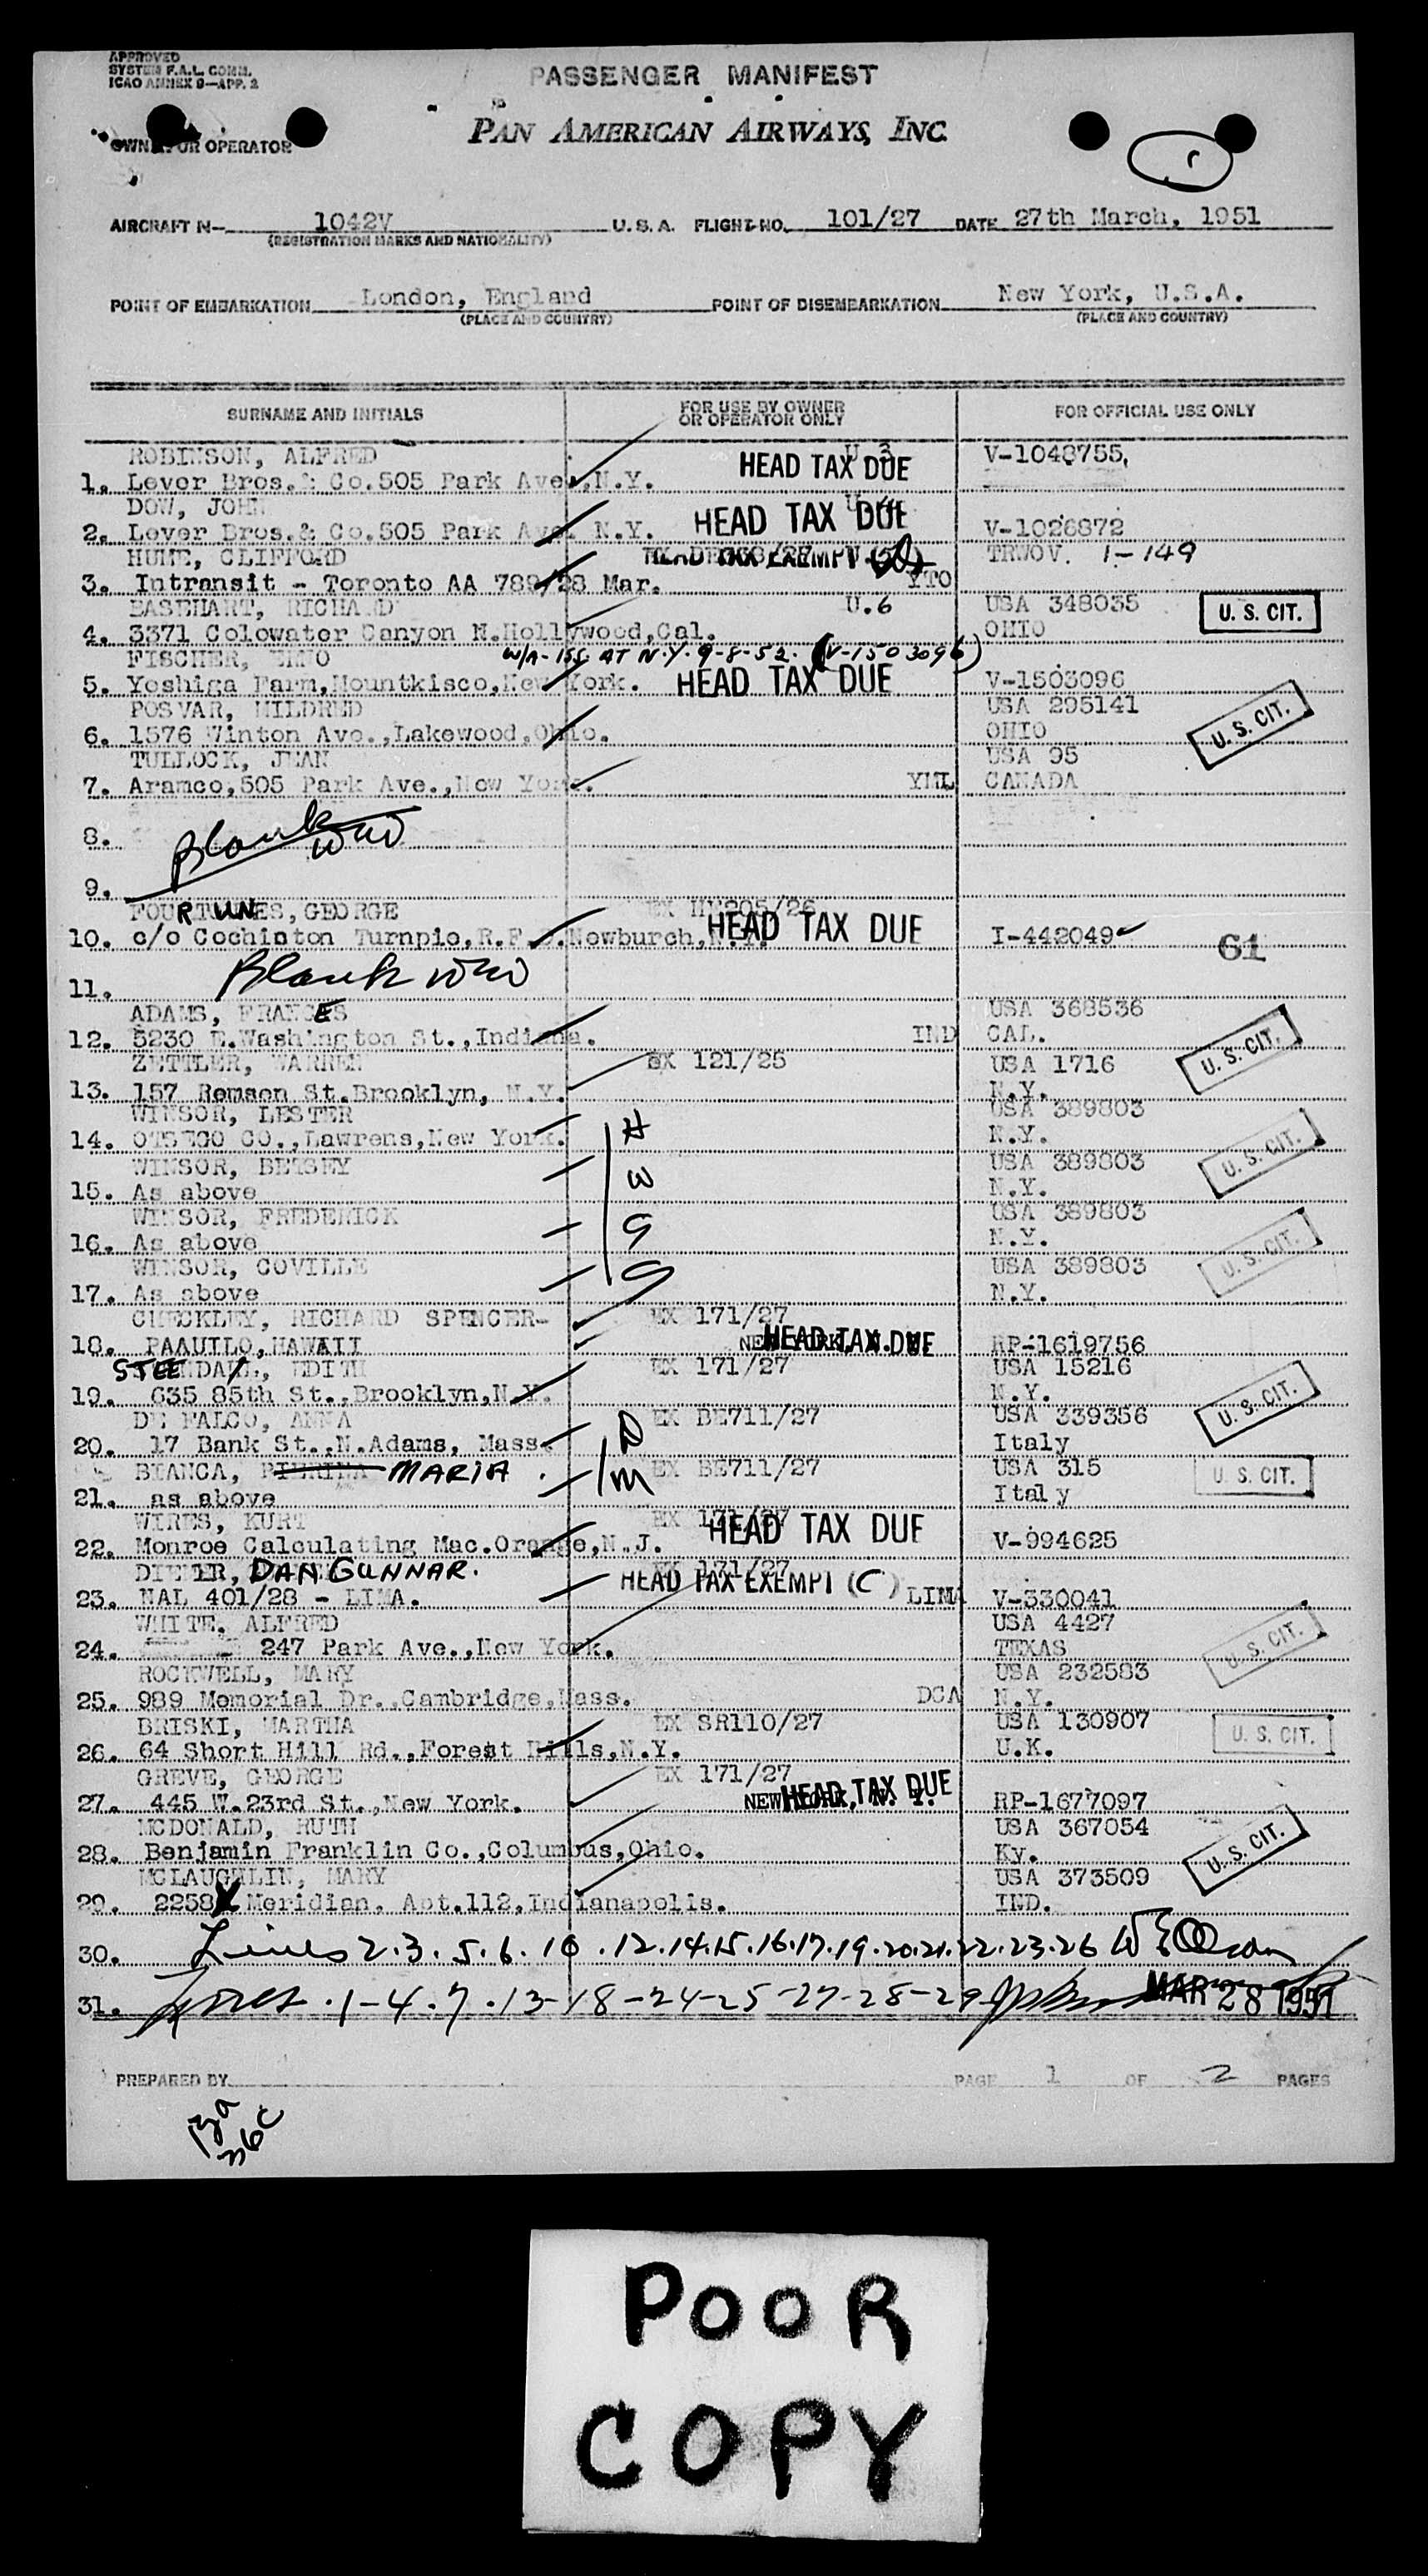 APPROVED
SYSTEM F.A.L. COMM.
ICAO ANNEX 9—APP. 2
PASSENGER MANIFEST
PAN AMERICAN AIRWAYS, INC.
OWNER OR OPERATOR
AIRCRAFT N— 1042V U.S.A. FLIGHT NO. 101/27 DATE 27th March, 1951
(REGISTRATION MARKS AND NATIONALITY)
POINT OF EMBARKATION London, England POINT OF DISEMBARKATION New York, U.S.A.
(PLACE AND COUNTRY) (PLACE AND COUNTRY)
SURNAME AND INITIALS FOR USE BY OWNER OR OPERATOR ONLY FOR OFFICIAL USE ONLY
ROBINSON, ALFRED U.3
1. Lever Bros.& Co.505 Park Ave.,N.Y. HEAD TAX DUE V-1048755.
DOW, JOHN
2. Lever Bros.& Co.505 Park Ave. N.Y. HEAD TAX DUE V-1026872
HUME, CLIFFORD HEAD TAX EXEMPT TRWOV. 1-149
3. Intransit - Toronto AA 789/28 Mar. YTO
BASEHART, RICHARD U.6 USA 348035 U. S. CIT.
4. 3371 Colowater Canyon N.Hollywood,Cal. OHIO
FISCHER, ERNO W/A-155 AT N.Y. 9-8-52. (V-1503096)
5. Yoshiga Farm,Mountkisco,New York. HEAD TAX DUE V-1503096
POSVAR, MILDRED USA 295141
6. 1576 Winton Ave.,Lakewood,Ohio. OHIO U. S. CIT.
TULLOCK, JEAN USA 95
7. Aramco,505 Park Ave.,New York. YUL CANADA
8. Blank
9.
FOURTUNES,GEORGE
10. c/o Cochinton Turnpie,R.F.D.Newburch,N.Y. HEAD TAX DUE I-442049 G1
11. Blank
ADAMS, FRANCES USA 368536
12. 5230 E.Washington St.,Indiana. IND CAL. U. S. CIT.
ZETTLER, WARREN EX 121/25 USA 1716
13. 157 Remsen St.Brooklyn, N.Y. N.Y.
WINSOR, LESTER USA 389803
14. OTSEGO CO.,Lawrens,New York. H N.Y. U. S. CIT.
WINSOR, BETSEY USA 389803
15. As above W N.Y.
WINSOR, FREDERICK USA 389803
16. As above N.Y. U. S. CIT.
WINSOR, COVILLE USA 389803
17. As above N.Y.
CHECKLEY, RICHARD SPENCER- EX 171/27
18. PAAUILO,HAWAII NEW YORK, N. Y. HEAD TAX DUE RP-1619756
STEEDAL, EDITH EX 171/27 USA 15216
19. 635 85th St.,Brooklyn,N.Y. N.Y. U. S. CIT.
DE FALCO, ANNA EX BE711/27 USA 339356
20. 17 Bank St.,N.Adams, Mass. D Italy
BIANCA, MARIA EX BE711/27 USA 315 U. S. CIT.
21. as above M Italy
WIRES, KURT EX 171/27
22. Monroe Calculating Mac.Orange,N.J. HEAD TAX DUE V-994625
DAN GUNNAR. EX 171/27
23. NAL 401/28 - LIMA. HEAD TAX EXEMPT (C) LIMA V-330041
WHITE, ALFRED USA 4427
24. 247 Park Ave.,New York. TEXAS U. S. CIT.
ROCKWELL, MARY USA 232583
25. 989 Memorial Dr.,Cambridge,Mass. DCA N.Y.
BRISKI, MARTHA EX SR110/27 USA 130907 U. S. CIT.
26. 64 Short Hill Rd.,Forest Hills,N.Y. U.K.
GREVE, GEORGE EX 171/27
27. 445 W.23rd St.,New York. NEW YORK, N. Y. HEAD TAX DUE RP-1677097
MCDONALD, RUTH USA 367054
28. Benjamin Franklin Co.,Columbus,Ohio. Ky. U. S. CIT.
MCLAUGHLIN, MARY USA 373509
29. 2258 Meridian, Apt.112,Indianapolis. IND.
30. Lines 2.3.5.6.10.12.14.15.16.17.19.20.21.22.23.26
31. Lines 1-4.7.13-18-24-25-27-28-29 MAR 28 1951
PREPARED BY PAGE 1 OF 2 PAGES
POOR
COPY